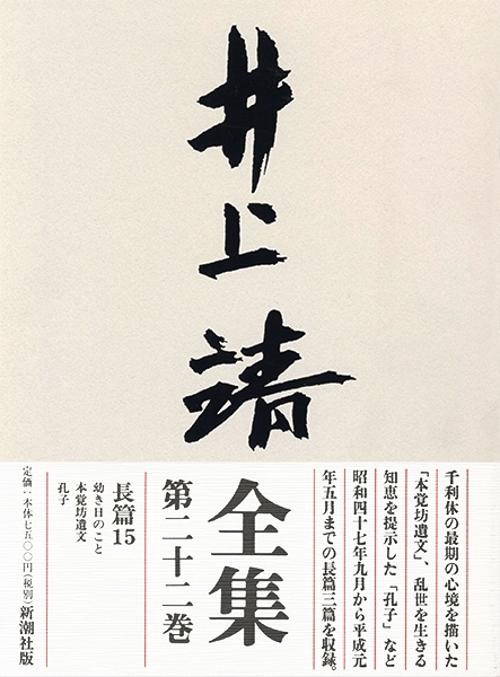 井上靖
全集
第二十二巻
千利休の最期の心境を描いた
「本覚坊遺文」、乱世を生きる
知恵を提示した「孔子」など
昭和四十七年九月から平成元
年五月までの長篇三篇を収録。
長篇15
幼き日のこと
本覚坊遺文
孔子
定価：本体七五〇〇円(税別)新潮社版